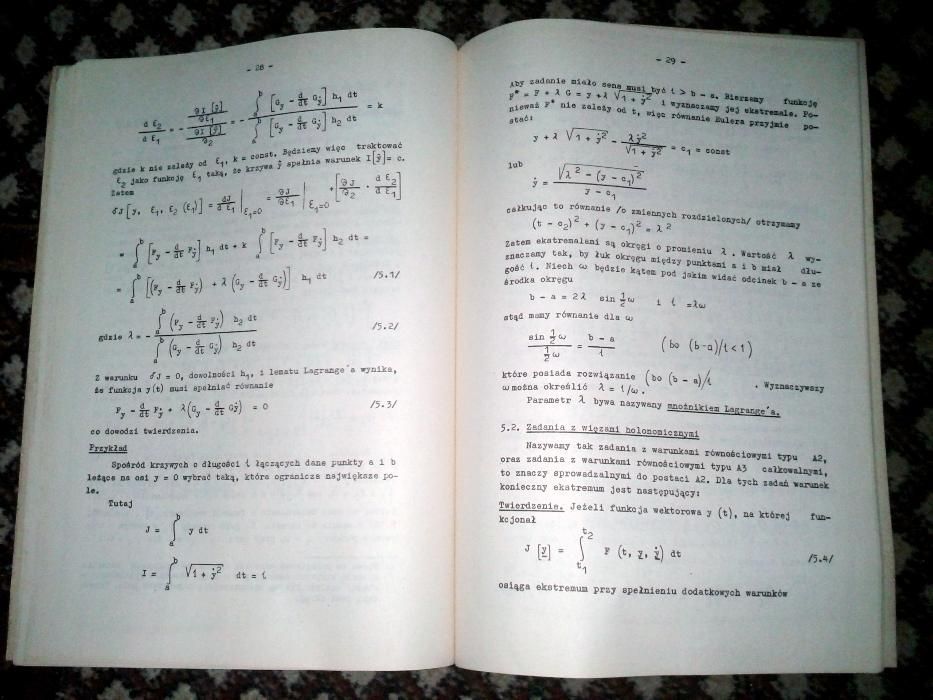 - 28 -
d ε₂ / d ε₁ = - (∂I [ŷ] / ∂ε₁) / (∂I [ŷ] / ∂₂) = - ∫ₐᵇ [G_y - d/dt G_ẏ] h₁ dt / ∫ₐᵇ [G_y - d/dt G_ẏ] h₂ dt = k
gdzie k nie zależy od ε₁, k = const. Będziemy więc traktować
ε₂ jako funkcję ε₁ taką, że krzywa ŷ spełnia warunek I[ŷ]= c.
Zatem
δJ [y, ε₁, ε₂ (ε₁)] = dJ / d ε₁ |ε₁=0 = ∂J / ∂ε₁ |ε₁=0 + [∂J / ∂₂ · d ε₂ / d ε₁]
= ∫ₐᵇ [F_y - d/dt F_ẏ] h₁ dt + k ∫ₐᵇ [F_y - d/dt F_ẏ] h₂ dt =
= ∫ₐᵇ [(F_y - d/dt F_ẏ) + λ (G_y - d/dt G_ẏ)] h₁ dt /5.1/
gdzie λ = - ∫ₐᵇ (F_y - d/dt F_ẏ) h₂ dt / ∫ₐᵇ (G_y - d/dt G_ẏ) h₂ dt /5.2/
Z warunku δJ = 0, dowolności h₁, i lematu Lagrange´a wynika,
że funkcja y(t) musi spełniać równanie
F_y - d/dt F_ẏ + λ(G_y - d/dt G_ẏ) = 0 /5.3/
co dowodzi twierdzenia.
Przykład
Spośród krzywych o długości ł łączących dane punkty a i b
leżące na osi y = 0 wybrać taką, która ogranicza największe po-
le.
Tutaj
J = ∫ₐᵇ y dt
I = ∫ₐᵇ √(1 + ẏ²) dt = ł
- 29 -
Aby zadanie miało sens musi być ł > b - a. Bierzemy funkcję
F* = F + λ G = y + λ √(1 + ẏ²) i wyznaczamy jej ekstremale. Po-
nieważ F* nie zależy od t, więc równanie Eulera przyjmie po-
stać:
y + λ √(1 + ẏ²) - λẏ² / √(1 + ẏ²) = c₁ = const
lub
ẏ = √(λ² - (y - c₁)²) / y - c₁
całkując to równanie /o zmiennych rozdzielonych/ otrzymamy
(t - c₂)² + (y - c₁)² = λ²
Zatem ekstremalami są okręgi o promieniu λ. Wartość λ wy-
znaczamy tak, by łuk okręgu między punktami a i b miał dłu-
gość ł. Niech ω będzie kątem pod jakim widać odcinek b - a ze
środka okręgu
b - a = 2λ sin ½ω i ł =λω
stąd mamy równanie dla ω
sin ½ω / ½ω = b - a / ł (bo (b-a)/ł<1)
które posiada rozwiązanie (bo (b - a)/ł . Wyznaczywszy
ω można określić λ = ł/ω.
Parametr λ bywa nazywany mnożnikiem Lagrange´a.
5.2. Zadania z więzami holonomicznymi
Nazywamy tak zadania z warunkami równościowymi typu A2,
oraz zadania z warunkami równościowymi typu A3 całkowalnymi,
to znaczy sprowadzalnymi do postaci A2. Dla tych zadań warunek
konieczny ekstremum jest następujący:
Twierdzenie. Jeżeli funkcja wektorowa y (t), na której fun-
kcjonał
J [y] = ∫ₜ₁ᵗ² F (t, y, ẏ) dt /5.4/
osiąga ekstremum przy spełnieniu dodatkowych warunków